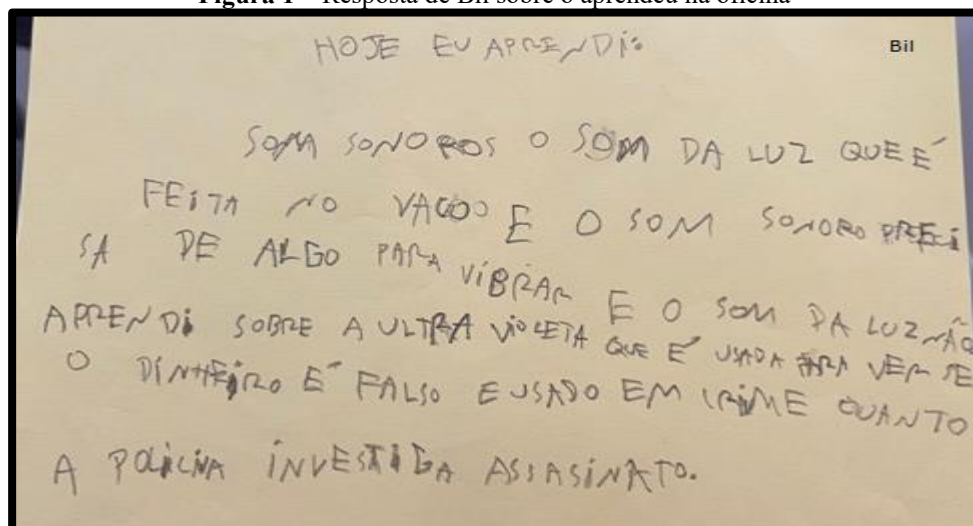 Figura 1 – Resposta de Bil sobre o aprendeu na oficina
Bil
HOJE EU APRENDI:
SOM SONOROS O SOM DA LUZ QUE É
FEITA NO VACOO E O SOM SONORO PRECI
SA DE ALGO PARA VIBRAR E O SOM DA LUZ NÃO
APRENDI SOBRE A ULTRA VIOLETA QUE É USADA PARA VER SE
O DINHEIRO É FALSO E USADO EM CRIME QUANTO
A POLICNA INVESTIGA ASSASINATO.